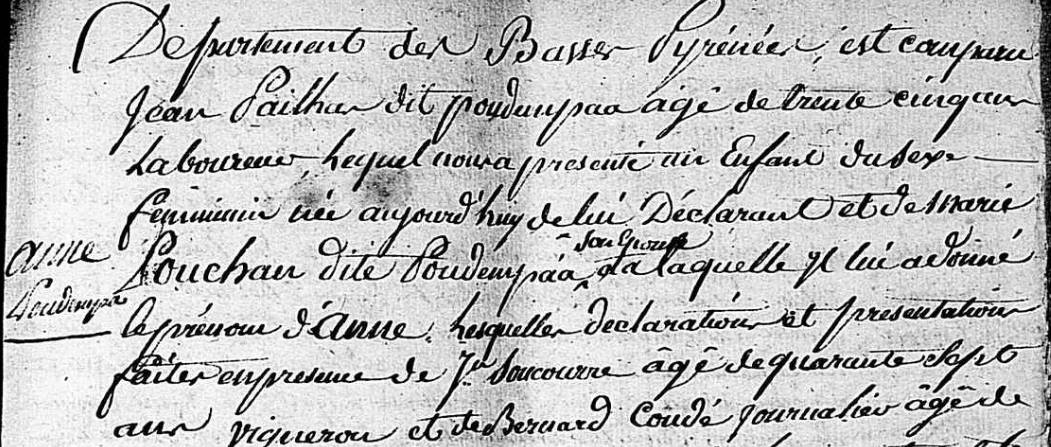 Departement des Basses Pyrénées, est comparu
Jean Pailhas dit poudempaa âgé de trente cinq ans
Laboureur, lequel nous a présenté un Enfant du sexe
féminimin née aujourd'huy de lui Déclarant et de marie
anne
son Epouse
Louchan dite Poudempáa, et a laquelle il lui a donné
Poudempaa
le prénom d'anne, lesquelles declarations et présentations
faites en presence de Jn Soucourre âgé de quarante Sept
ans vigneron et de Bernard Condé journalier âgé de